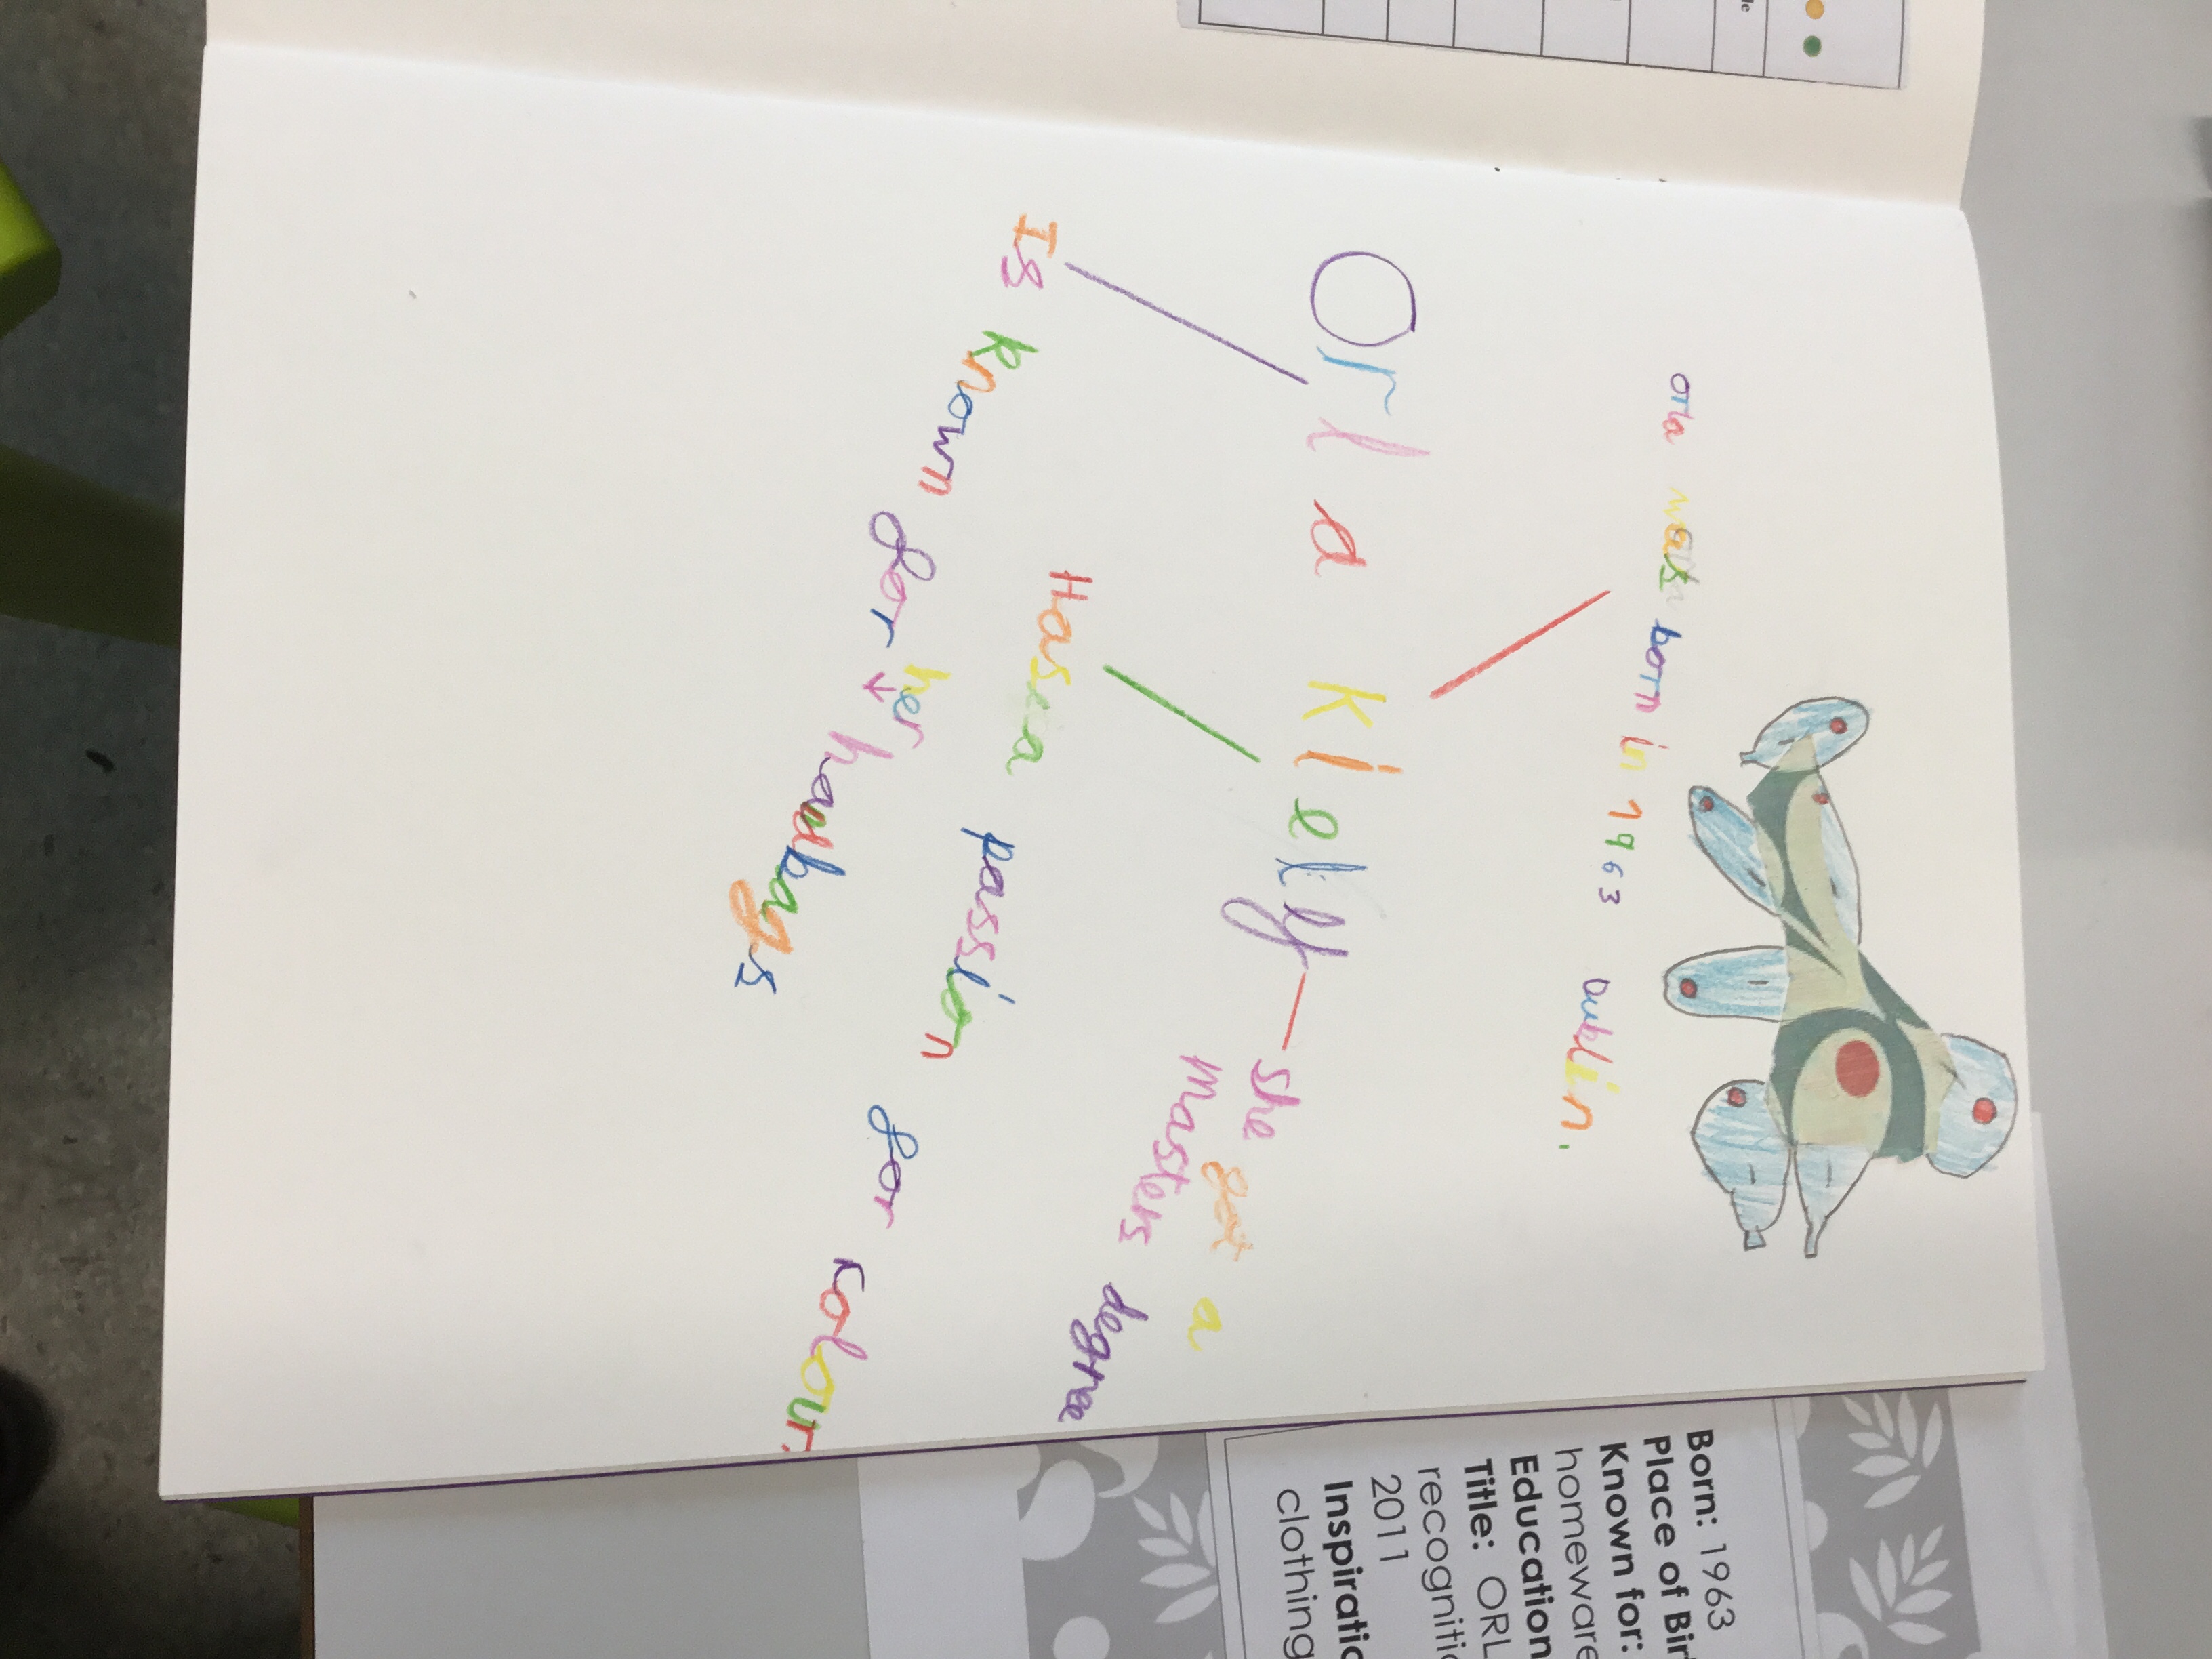 orla was born in 1963 Dublin.
Orla Kielly
She get a
Masters degree
Has a passion for colour.
Is known for her
haudbags
Born: 1963
Place of Bir
Known for:
homeware
Education
Title: ORL
recogniti
2011
Inspiratio
clothing
le